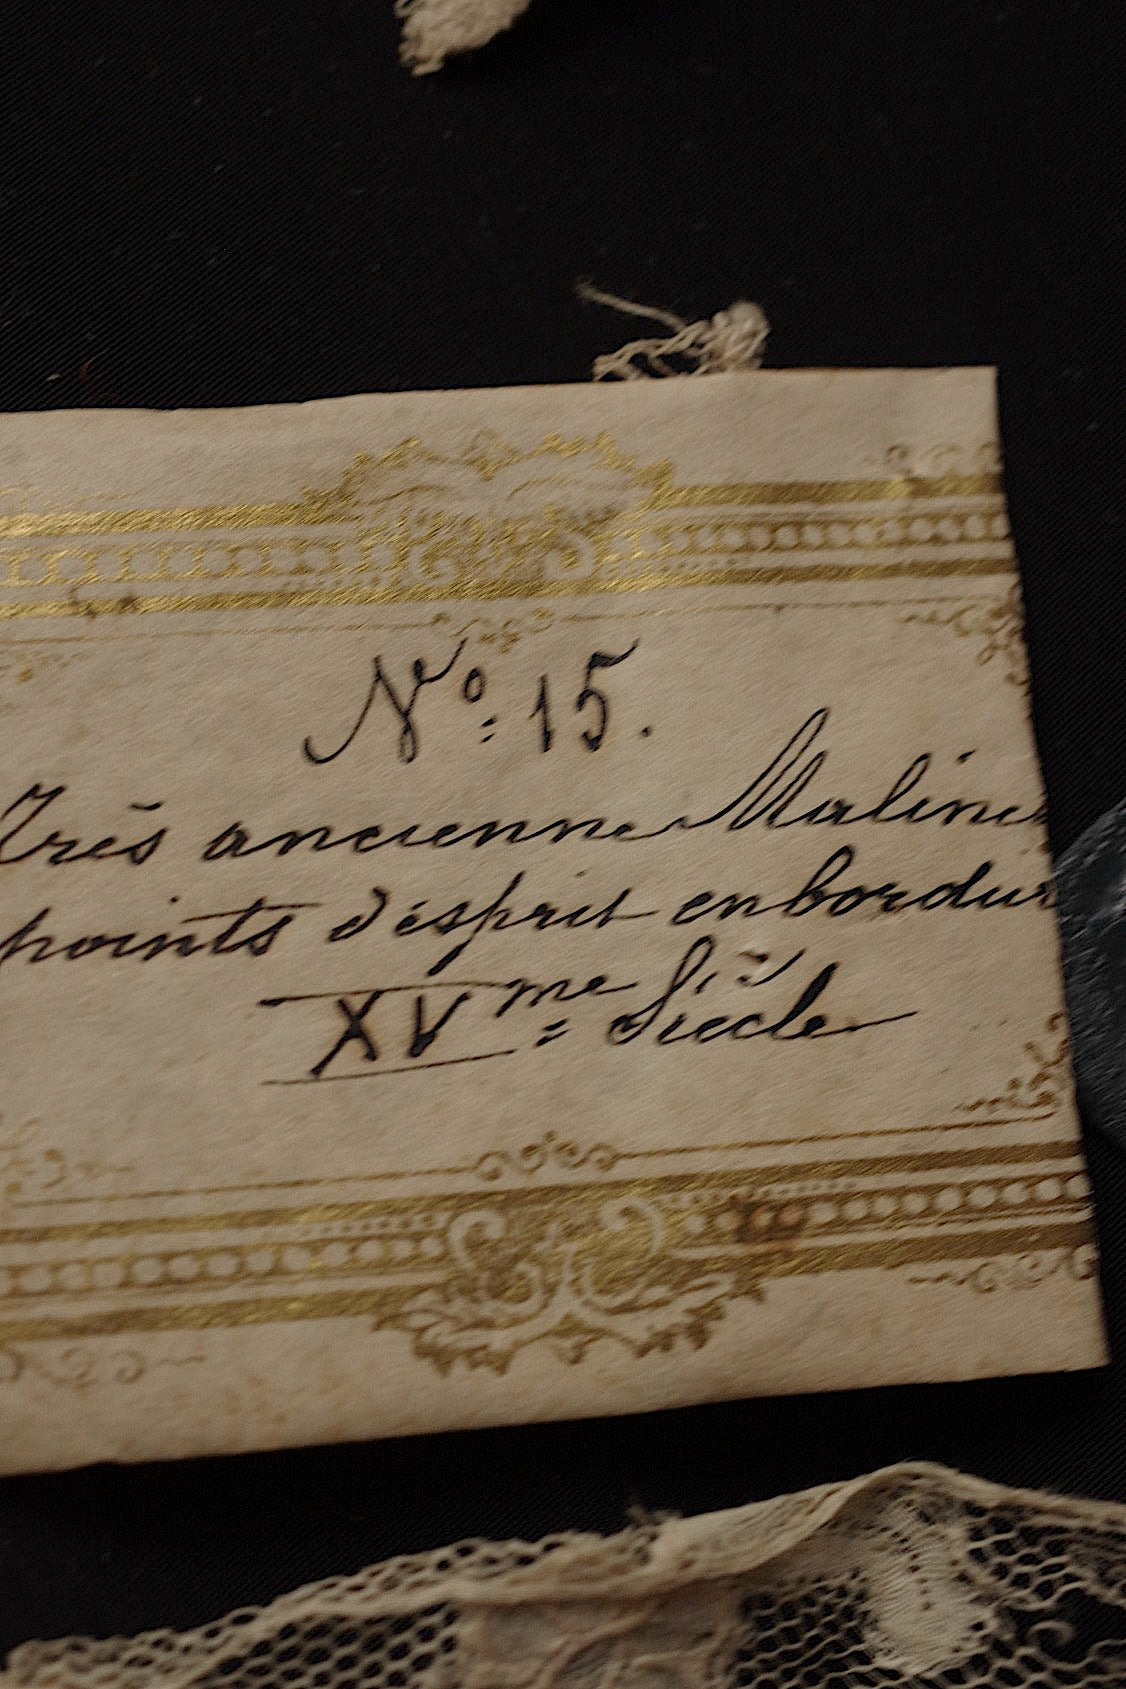 Nº 15.
Très ancienne Malines
points d'ésprit en bordur
XVme Siècle